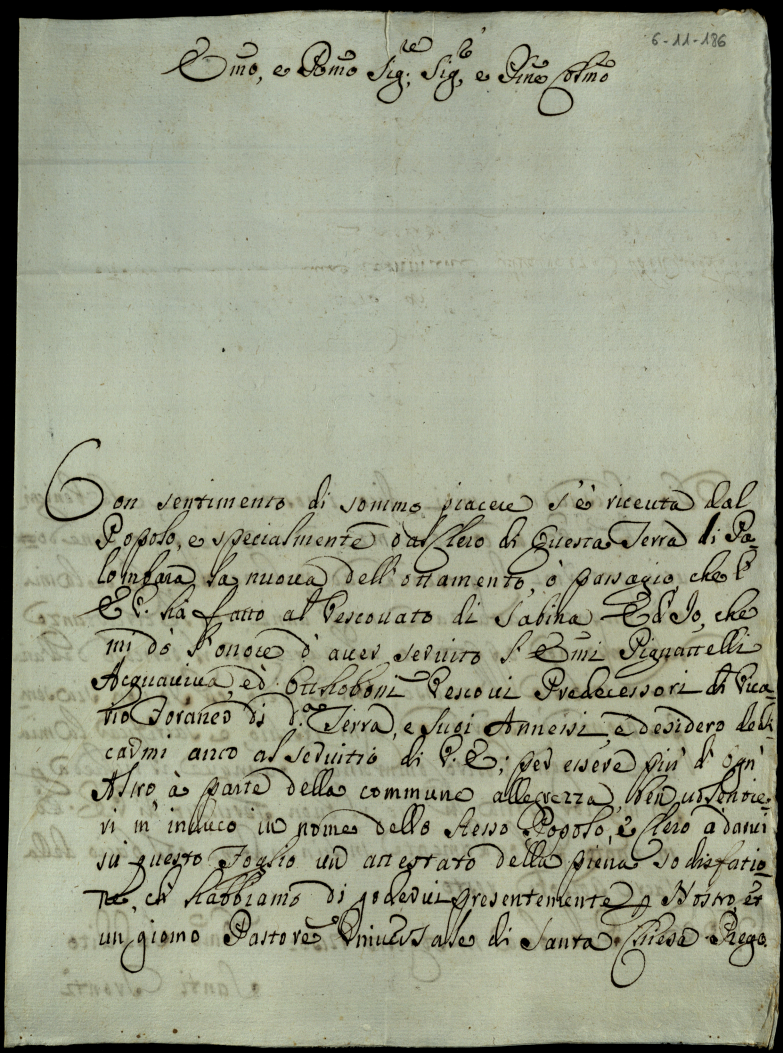 6-11-186
Emo, e Rmo Sig.re Sig.r e Pne Colmo
Con sentimento di sommo piacere s'è riceuta dal
Popolo, e specialmente dal Clero di Questa Terra di Pa=
lombara la nuova dell'ottamento, ò passagio, che l'
E V. hà fatto al Vescovato di Sabina Ed Io, che
mi dò l'onore d'aver servito l'Emi Pignattelli
Acquaviva, ed Otthoboni Vescovi Predecessori di Vica=
rio Foraneo di d.a Terra, e suoi Annessi, e desidero dedi=
carmi anco al servitio di V. E; per essere più d'ogn'
Altro à parte della commune allegrezza, ben volentie=
ri m'induco in nome dello stesso Popolo, e Clero a darvi
sù questo Foglio un attestato della piena sodisfatio=
ne, ch'habbiamo di godervi presentemente p Nostro, et
un giorno Pastore Universale di Santa Chiesa. Prego